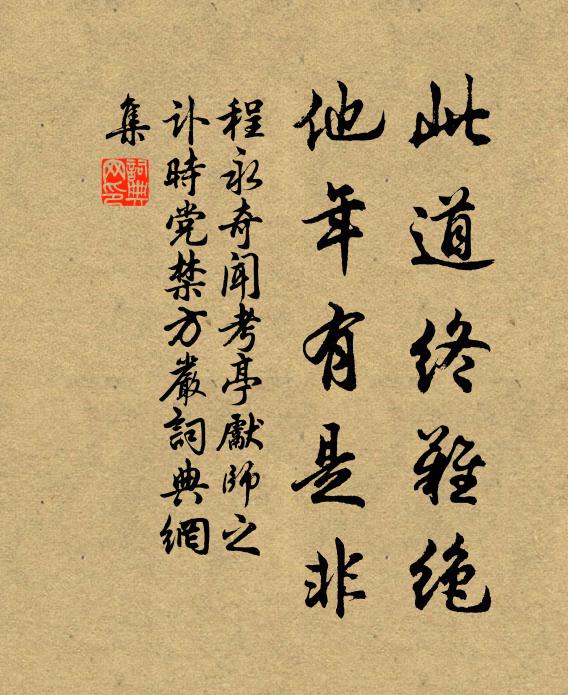 此道终难绝
他年有是非
程永奇闻考亭献师之
讣时党禁方严词典網
集
詞典
网印